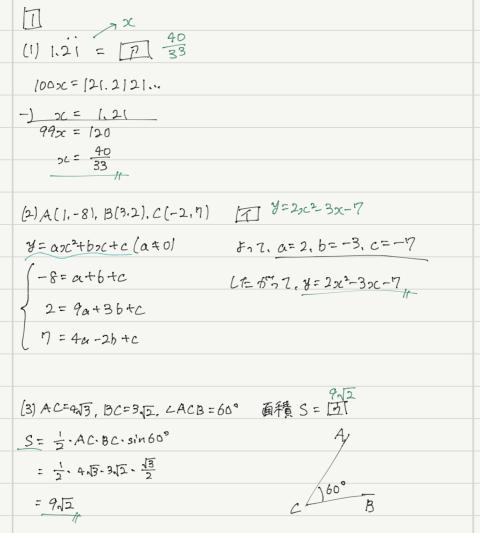 1
x
(1) 1.2̇1̇ = ア 40/33
100x = 121.2121...
-) x = 1.21
99x = 120
x = 40/33
(2) A(1,-8), B(3,2), C(-2,7) イ y=2x²-3x-7
y=ax²+bx+c (a≠0)
-8=a+b+c
2=9a+3b+c
7=4a-2b+c
よって、a=2, b=-3, c=-7
したがって、y=2x²-3x-7
(3) AC=4√3, BC=3√2, ∠ACB=60° 面積 S=ウ 9√2
S=1/2・AC・BC・sin60°
=1/2・4√3・3√2・√3/2
=9√2
A
60°
C
B